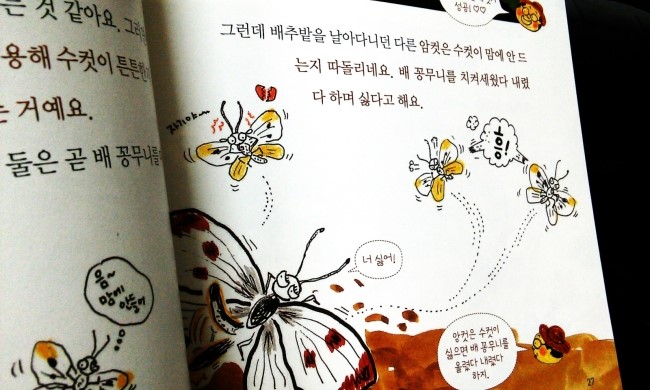 는 것 같아요. 그래
용해 수컷이 튼튼한
는 거예요.
둘은 곧 배 꽁무니를
음~
맘에
안들어
성공! ♡♡
그런데 배추밭을 날아다니던 다른 암컷은 수컷이 맘에 안 드
는지 따돌리네요. 배 꽁무니를 치켜세웠다 내렸
다 하며 싫다고 해요.
자기야~
흥!
너 싫어!
암컷은 수컷이
싫으면 배 꽁무니를
올렸다 내렸다
하지.
27